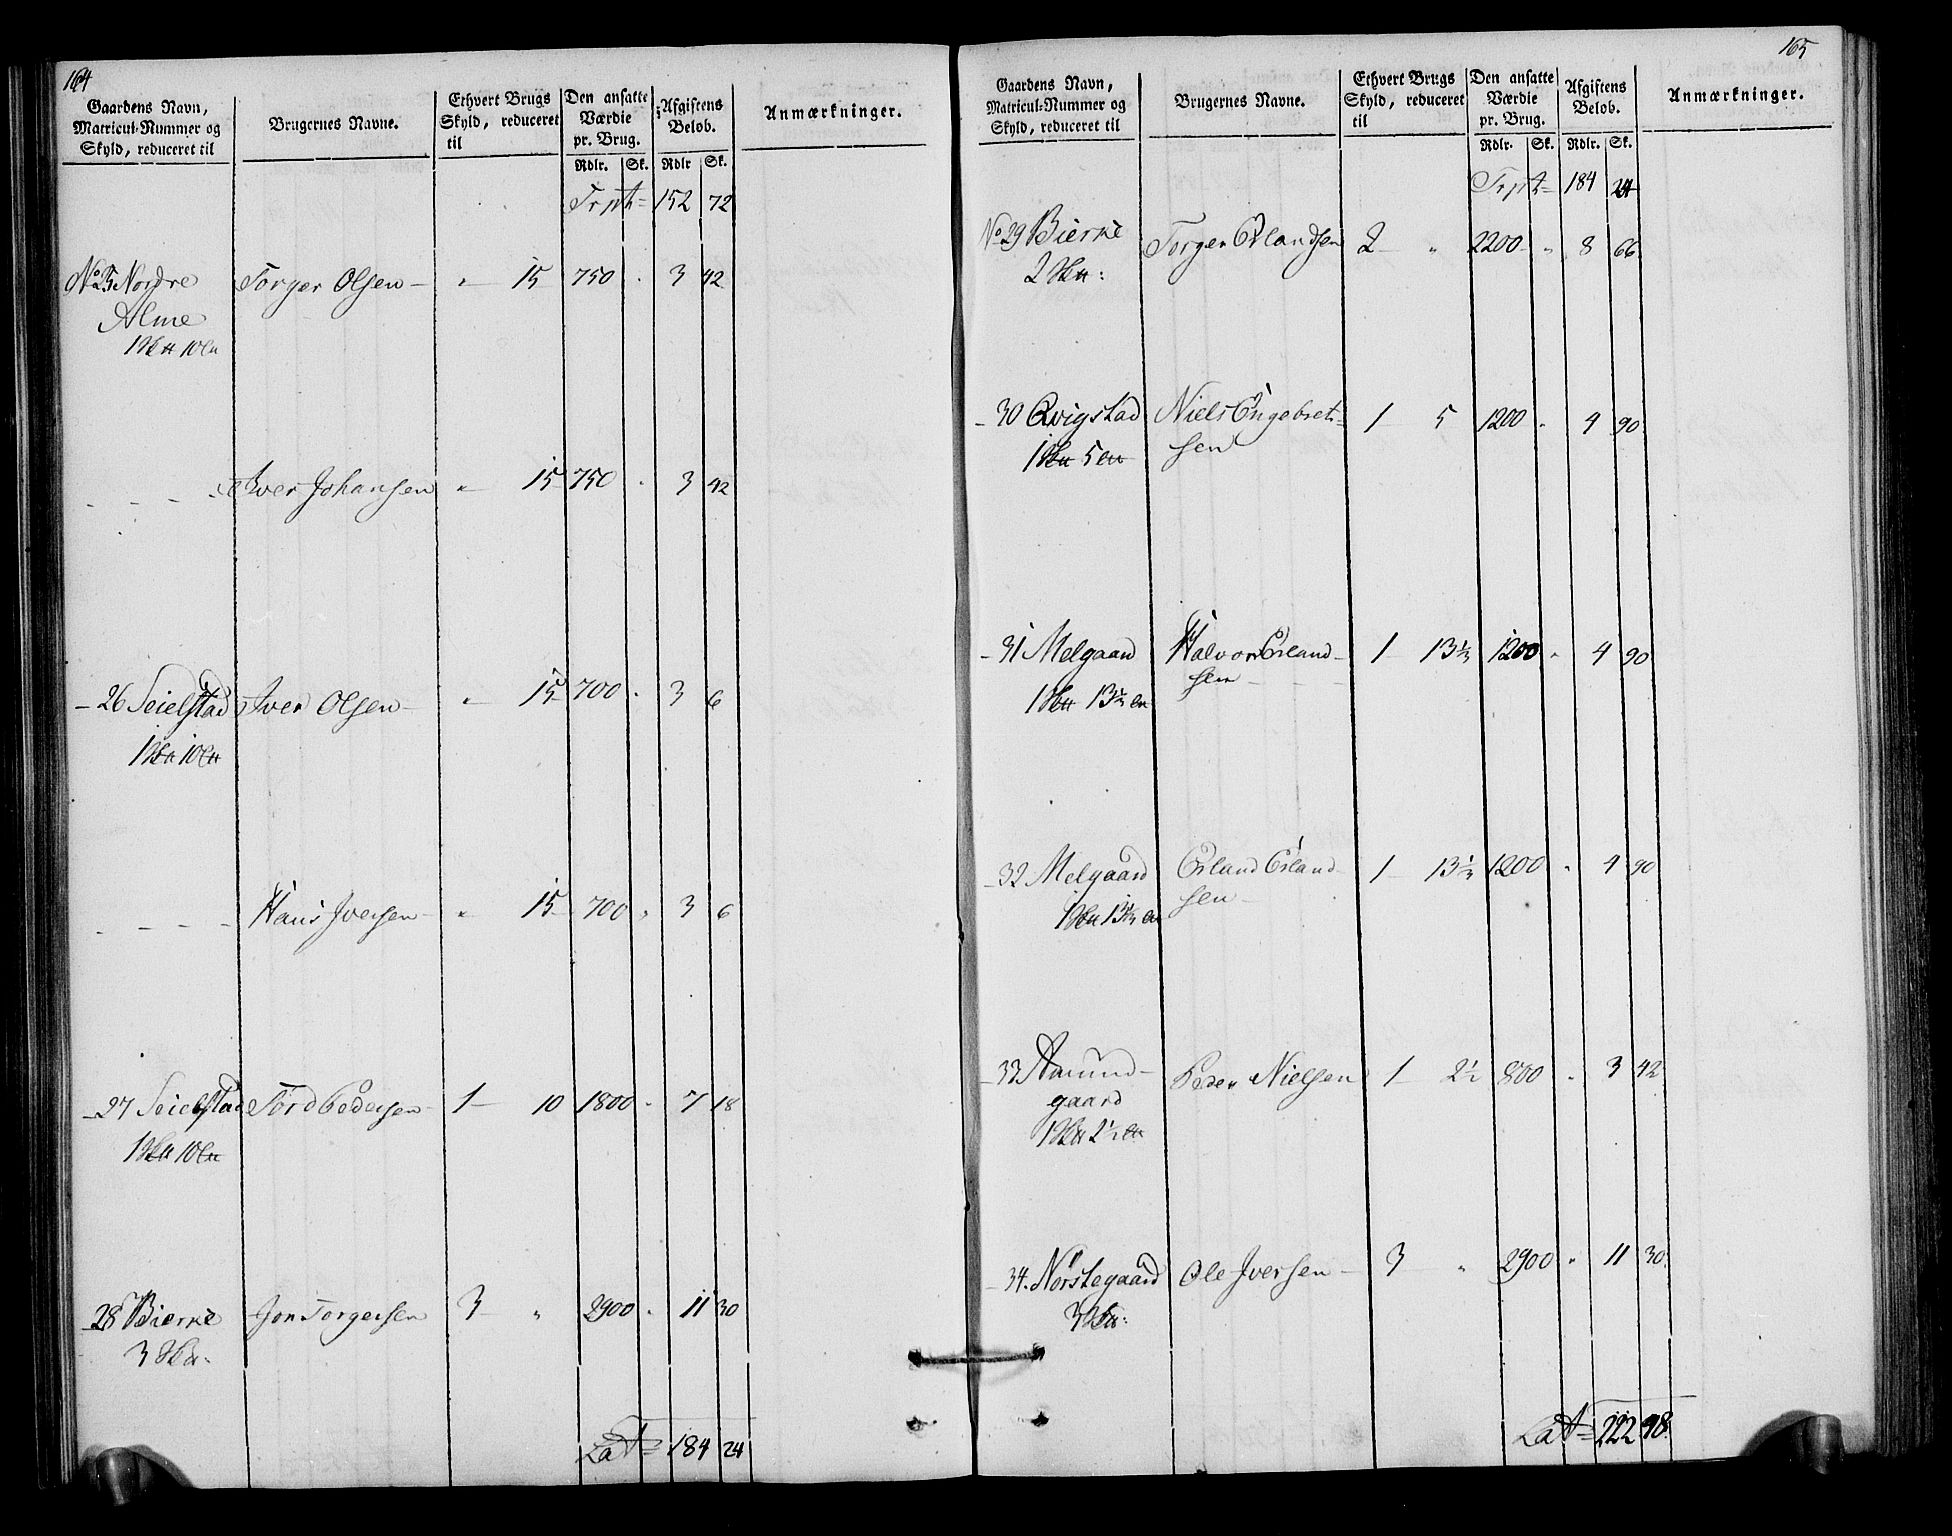 164
Gaardens Navn,
Matricul-Nummer og
Skyld, reduceret til
Brugernes Navne.
Ethvert Brugs
Skyld, reduceret
til
Den ansatte
Værdie
pr. Brug.
Afgiftens
Beløb.
Anmærkninger.
Rdlr. Sk. Rdlr Sk.
Trpt= 152 72
No 25 Nordre Torger Olsen - " 15 750 " 3 42
Alme
1 10
- - - - Iver Johansen " 15 750 " 3 42
- 26 Seielstad Iver Olsen - " 15 700 " 3 6
1 10
- - - - Hans Iversen - " 15 700 " 3 6
- 27 Seielstad Tord Pedersen - 1 - 10 1800 " 7 18
1 10
- 28 Bierke Jon Torgersen 3 - " 2900 " 11 30
3
Lat= 184 24
165
Gaardens Navn,
Matricul-Nummer og
Skyld, reduceret til
Brugernes Navne.
Ethvert Brugs
Skyld, reduceret
til
Den ansatte
Værdie
pr. Brug.
Afgiftens
Beløb.
Anmærkninger.
Rdlr. Sk. Rdlr. Sk.
Trpt= 184 24
No 29 Bierke Torger Erlandsen 2 " 2200 " 8 66
2
- 30 Qvigstad Niels Engebret= 1 - 5 1200 " 4 90
1 5 sen
- 31 Melgaard Halvor Erland- 1 - 13⅓ 1200 " 4 90
sen
1 13⅓
- 32 Melgaard Erland Erland- 1 - 13⅓ 1200 " 4 90
1 13⅓ sen -
- 33 Amund- Peder Nielsen 1 - 2½ 800 " 3 42
gaard
1 2½
- 34. Norstegaard Ole Iversen - 3 - " 2900 " 11 30
3
Lat= 222 48